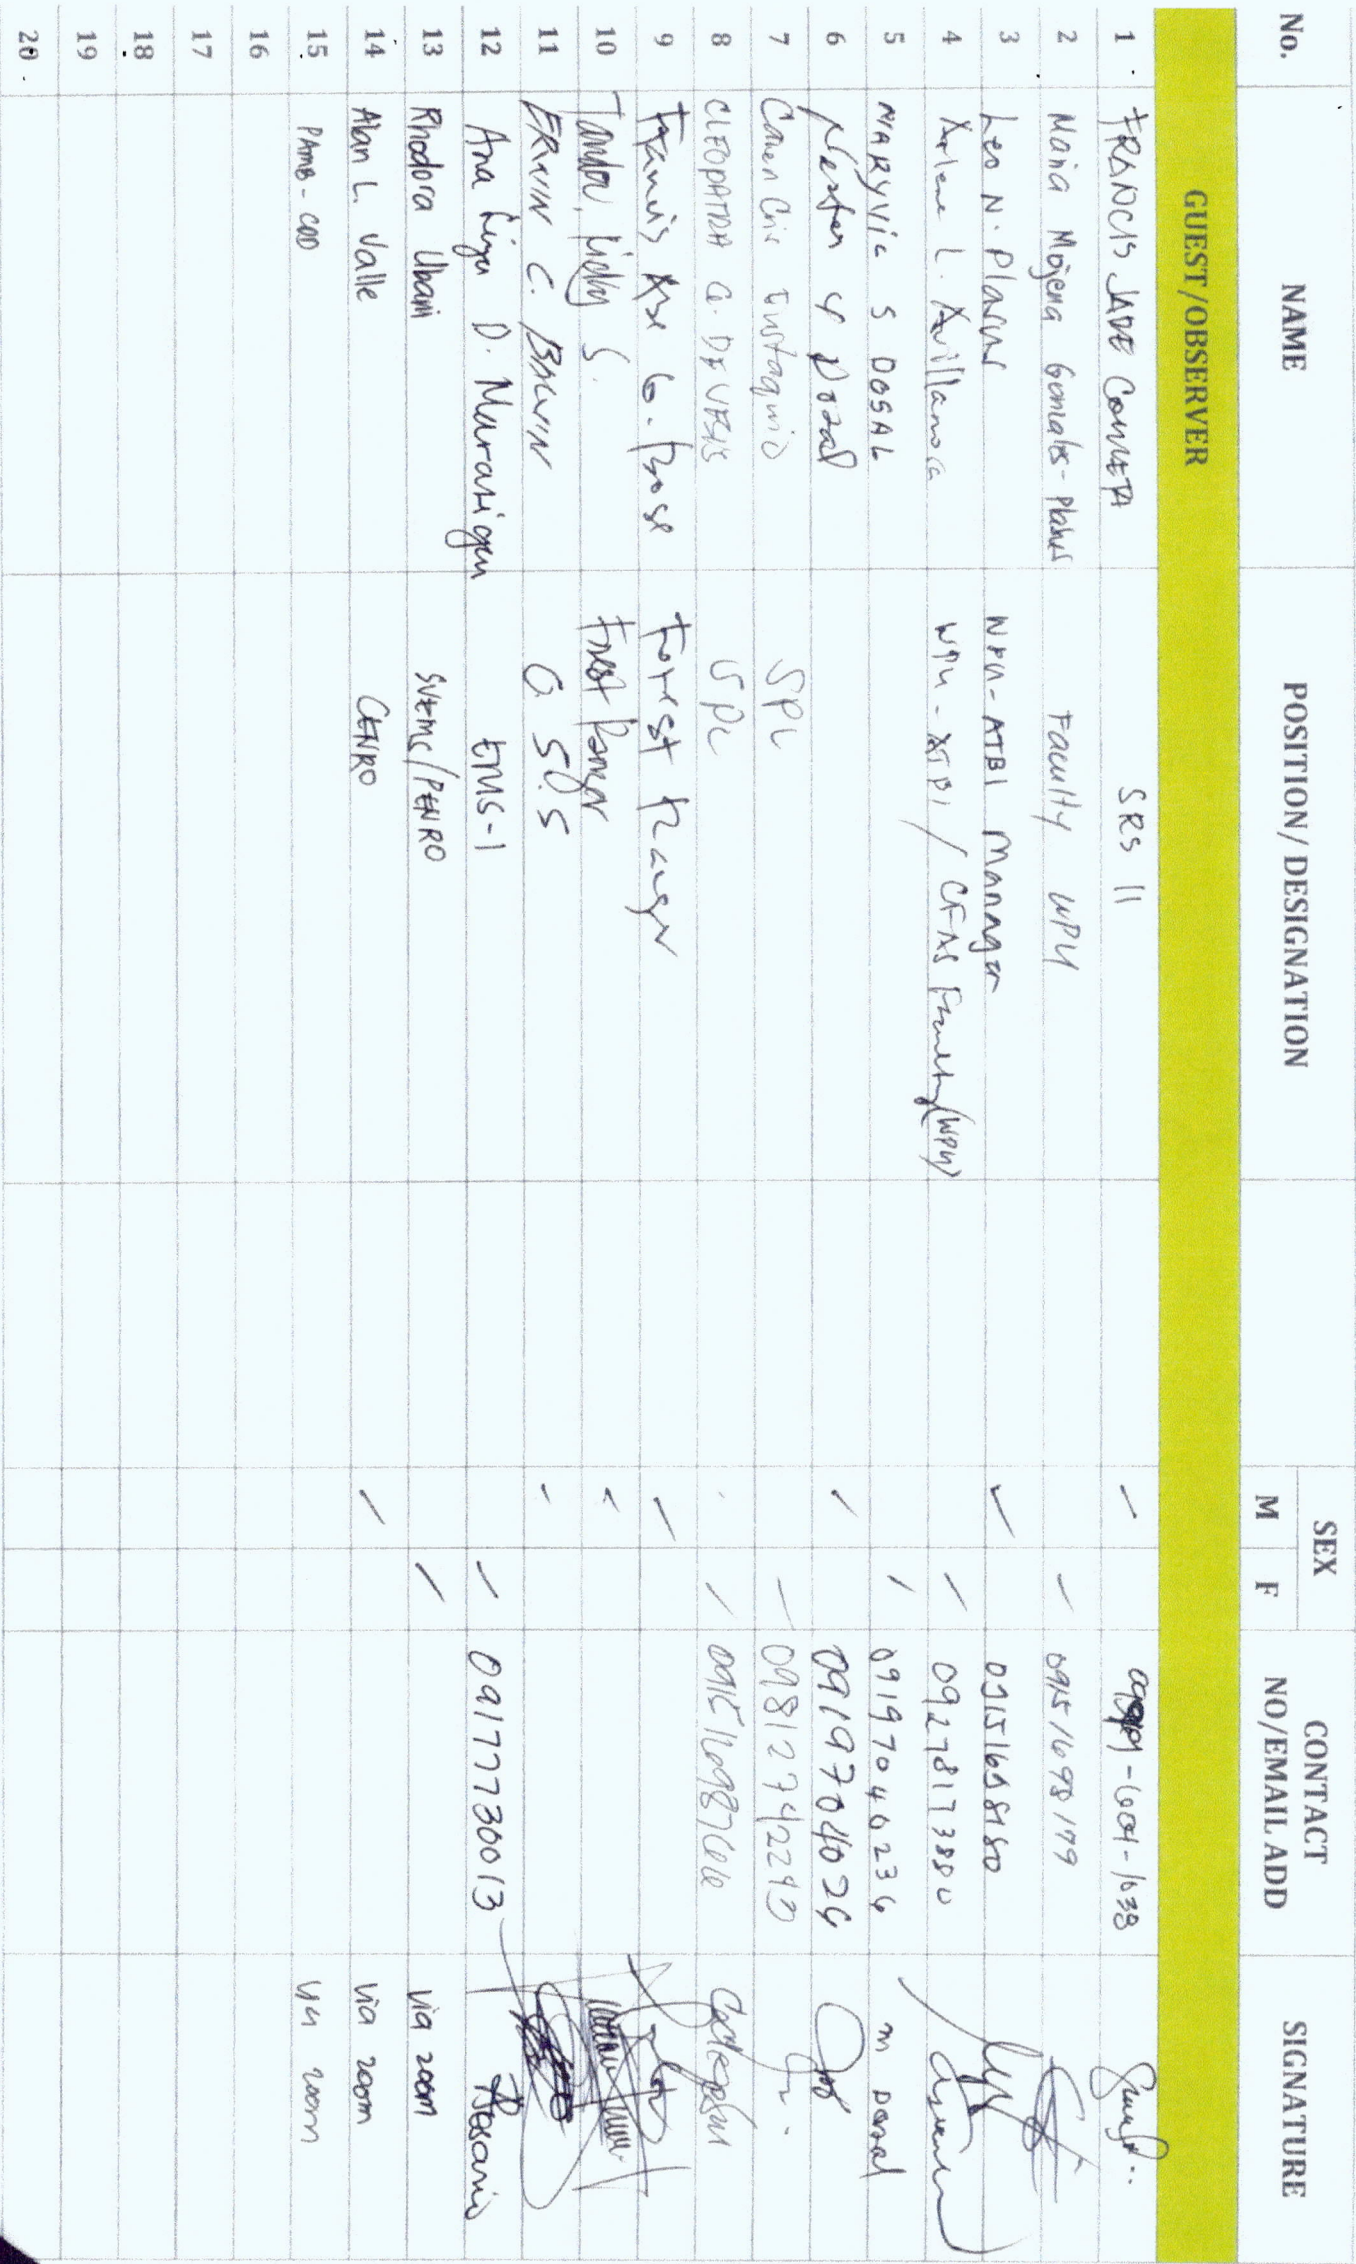 No. NAME POSITION/ DESIGNATION SEX CONTACT NO/EMAIL ADD SIGNATURE
M F
GUEST/OBSERVER
1 FRANCIS JADE COMETA SRS II -604-1038
2 Maria Mojena Gonzales-Plasus Faculty WPU 09151698179
3 Leo N. Plasus WPU-ATBI Manager 09151698180
4 L. Avillanosa WPU - ATBI / CFAS Faculty (WPU) 09278173880
5 MARYVIC S DOSAL 09197040236 m Dosal
6 Nestor Y Dosal 0919704026
7 Caren Cris Eustaquio SPL 09812742243
8 CLEOPATRA G. DE VESIS SPL
9 Francis G. Forest Ranger
10 Tandoc, Kicky S. Forest Ranger
11 ERWIN C. BACUIN G SD.S
12 Ana Liza D. Marasigan EMS-1 09177730013
13 Rhodora Ubani SVEMS/PENRO via zoom
14 Alan L. Valle CENRO via zoom
15 PAMB- via zoom
16
17
18
19
20